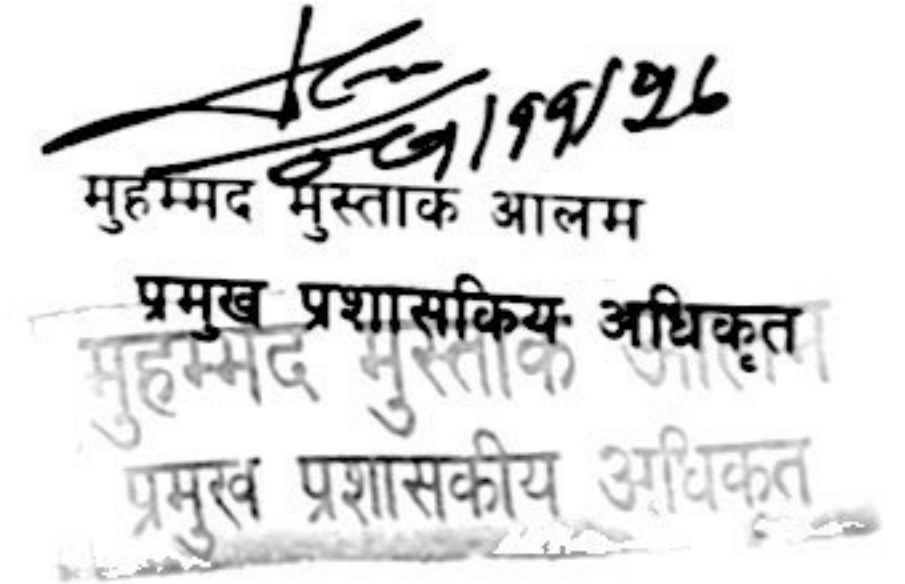 मुहम्मद मुस्ताक आलम
प्रमुख प्रशासकिय अधिकृत
मुहम्मद मुस्ताक आलम
प्रमुख प्रशासकीय अधिकृत